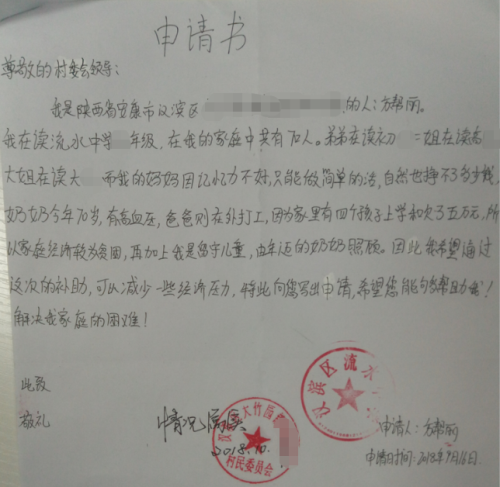 申请书
尊敬的村委会领导：
我是陕西省安康市汉滨区的人：方帮丽。
我在读流水中学年级，在我的家庭中共有70人。弟弟在读初二姐在读高
大姐在读大而我的奶奶因记忆力不好，只能做简单的活，自然也挣不了多少钱，
奶奶今年70岁，有高血压，爸爸则在外打工，因为家里有四个孩子上学和欠了五万元，所
以家庭经济较为贫困，再加上我是留守儿童，由年迈的奶奶照顾。因此我希望通过
这次的补助，可以减少一些经济压力，特此向您写出申请，希望您能够帮助我！
解决我家庭的困难！
此致
敬礼
情况属实
2018.10.
村民委员会
汉滨区流水
申请人：方帮丽
申请日期：2018年9月16日.